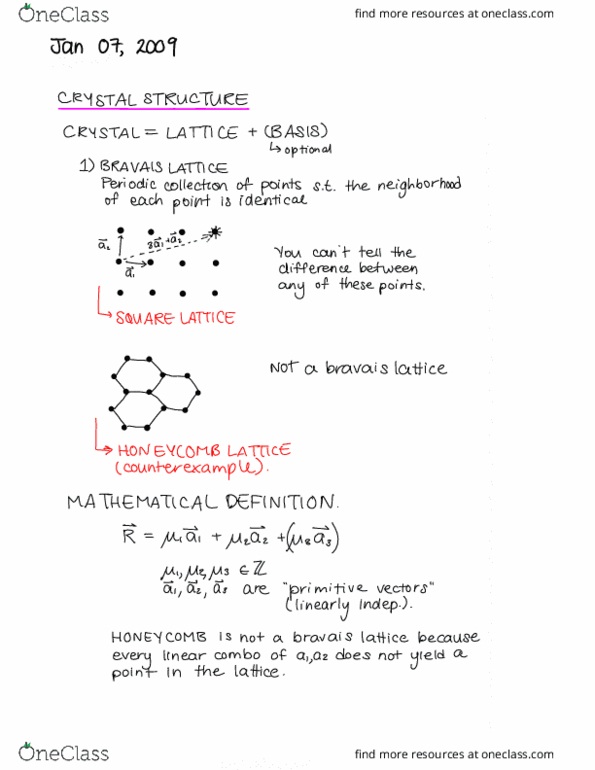 OneClass
find more resources at oneclass.com
Jan 07, 2009
CRYSTAL STRUCTURE
CRYSTAL = LATTICE + (BASIS)
↳ optional
1) BRAVAIS LATTICE
Periodic collection of points s.t. the neighborhood
of each point is identical
a⃗₂
3a⃗₁+a⃗₂
a⃗₁
You can't tell the
difference between
any of these points.
↳ SQUARE LATTICE
Not a bravais lattice
↳ HONEYCOMB LATTICE
(counterexample).
MATHEMATICAL DEFINITION.
R⃗ = μ₁a⃗₁ + μ₂a⃗₂ + (μ₃a⃗₃)
μ₁, μ₂, μ₃ ∈ ℤ
a⃗₁, a⃗₂, a⃗₃ are "primitive vectors"
(linearly indep.).
HONEYCOMB is not a bravais lattice because
every linear combo of a₁,a₂ does not yield a
point in the lattice.
OneClass
find more resources at oneclass.com